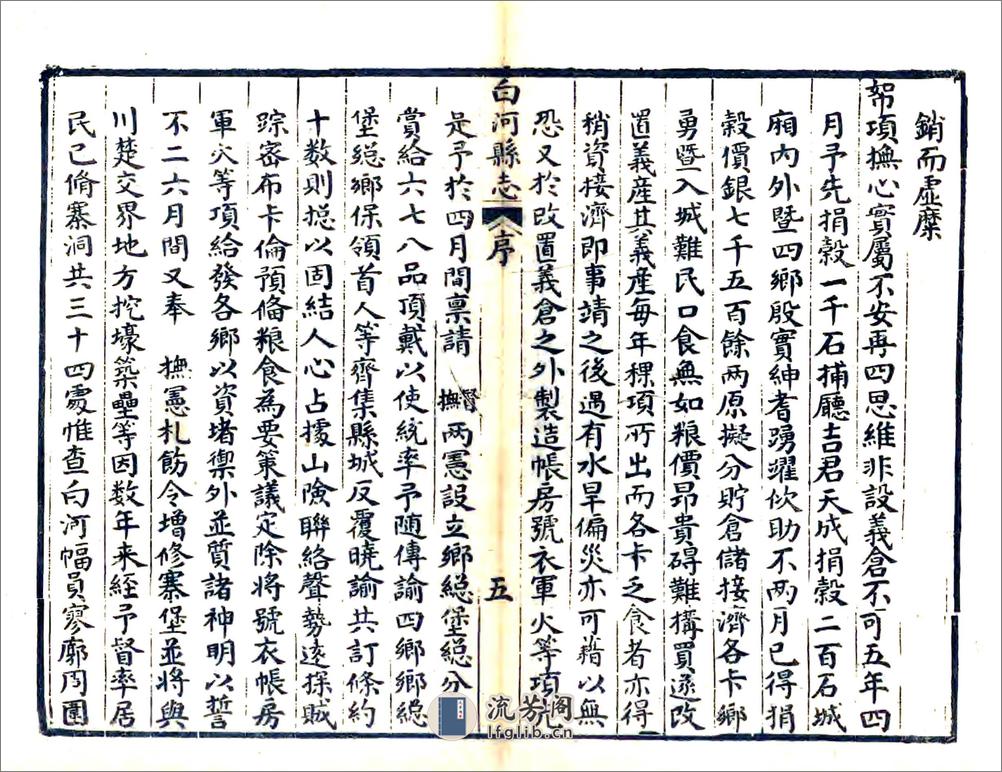 銷而虛糜
帑項撫心實屬不安再四思維非設義倉不可五年四
月予先捐穀一千石捕廳吉君天成捐穀二百石城
廂內外暨四鄉殷實紳耆踴躍佽助不兩月已得捐
穀價銀七千五百餘兩原擬分貯倉儲接濟各卡鄉
勇暨入城難民口食無如粮價昂貴碍難搆買遂改
置義產其義產每年稞項所出而各卡乏食者亦得
稍資接濟即事靖之後遇有水旱偏災亦可藉以無
恐又於改置義倉之外製造帳房號衣軍火等項
白河縣志 序 五
是予於四月間稟請 督撫 兩憲設立鄉總堡總分
賞給六七八品頂戴以使統率予隨傳諭四鄉鄉總
堡總鄉保領首人等齊集縣城反覆曉諭共訂條約
十數則揔以固結人心占據山險聯絡聲勢遠探賊
踪密布卡倫預俻粮食為要策議定除將號衣帳房
軍火等項給發各鄉以資堵禦外並質諸神明以誓
不二六月間又奉 撫憲札飭令增修寨堡並將與
川楚交界地方挖壕築壘等因数年来經予督率居
民已脩寨洞共三十四處惟查白河幅員寥廓周圍
流芳阁
lfglib.cn